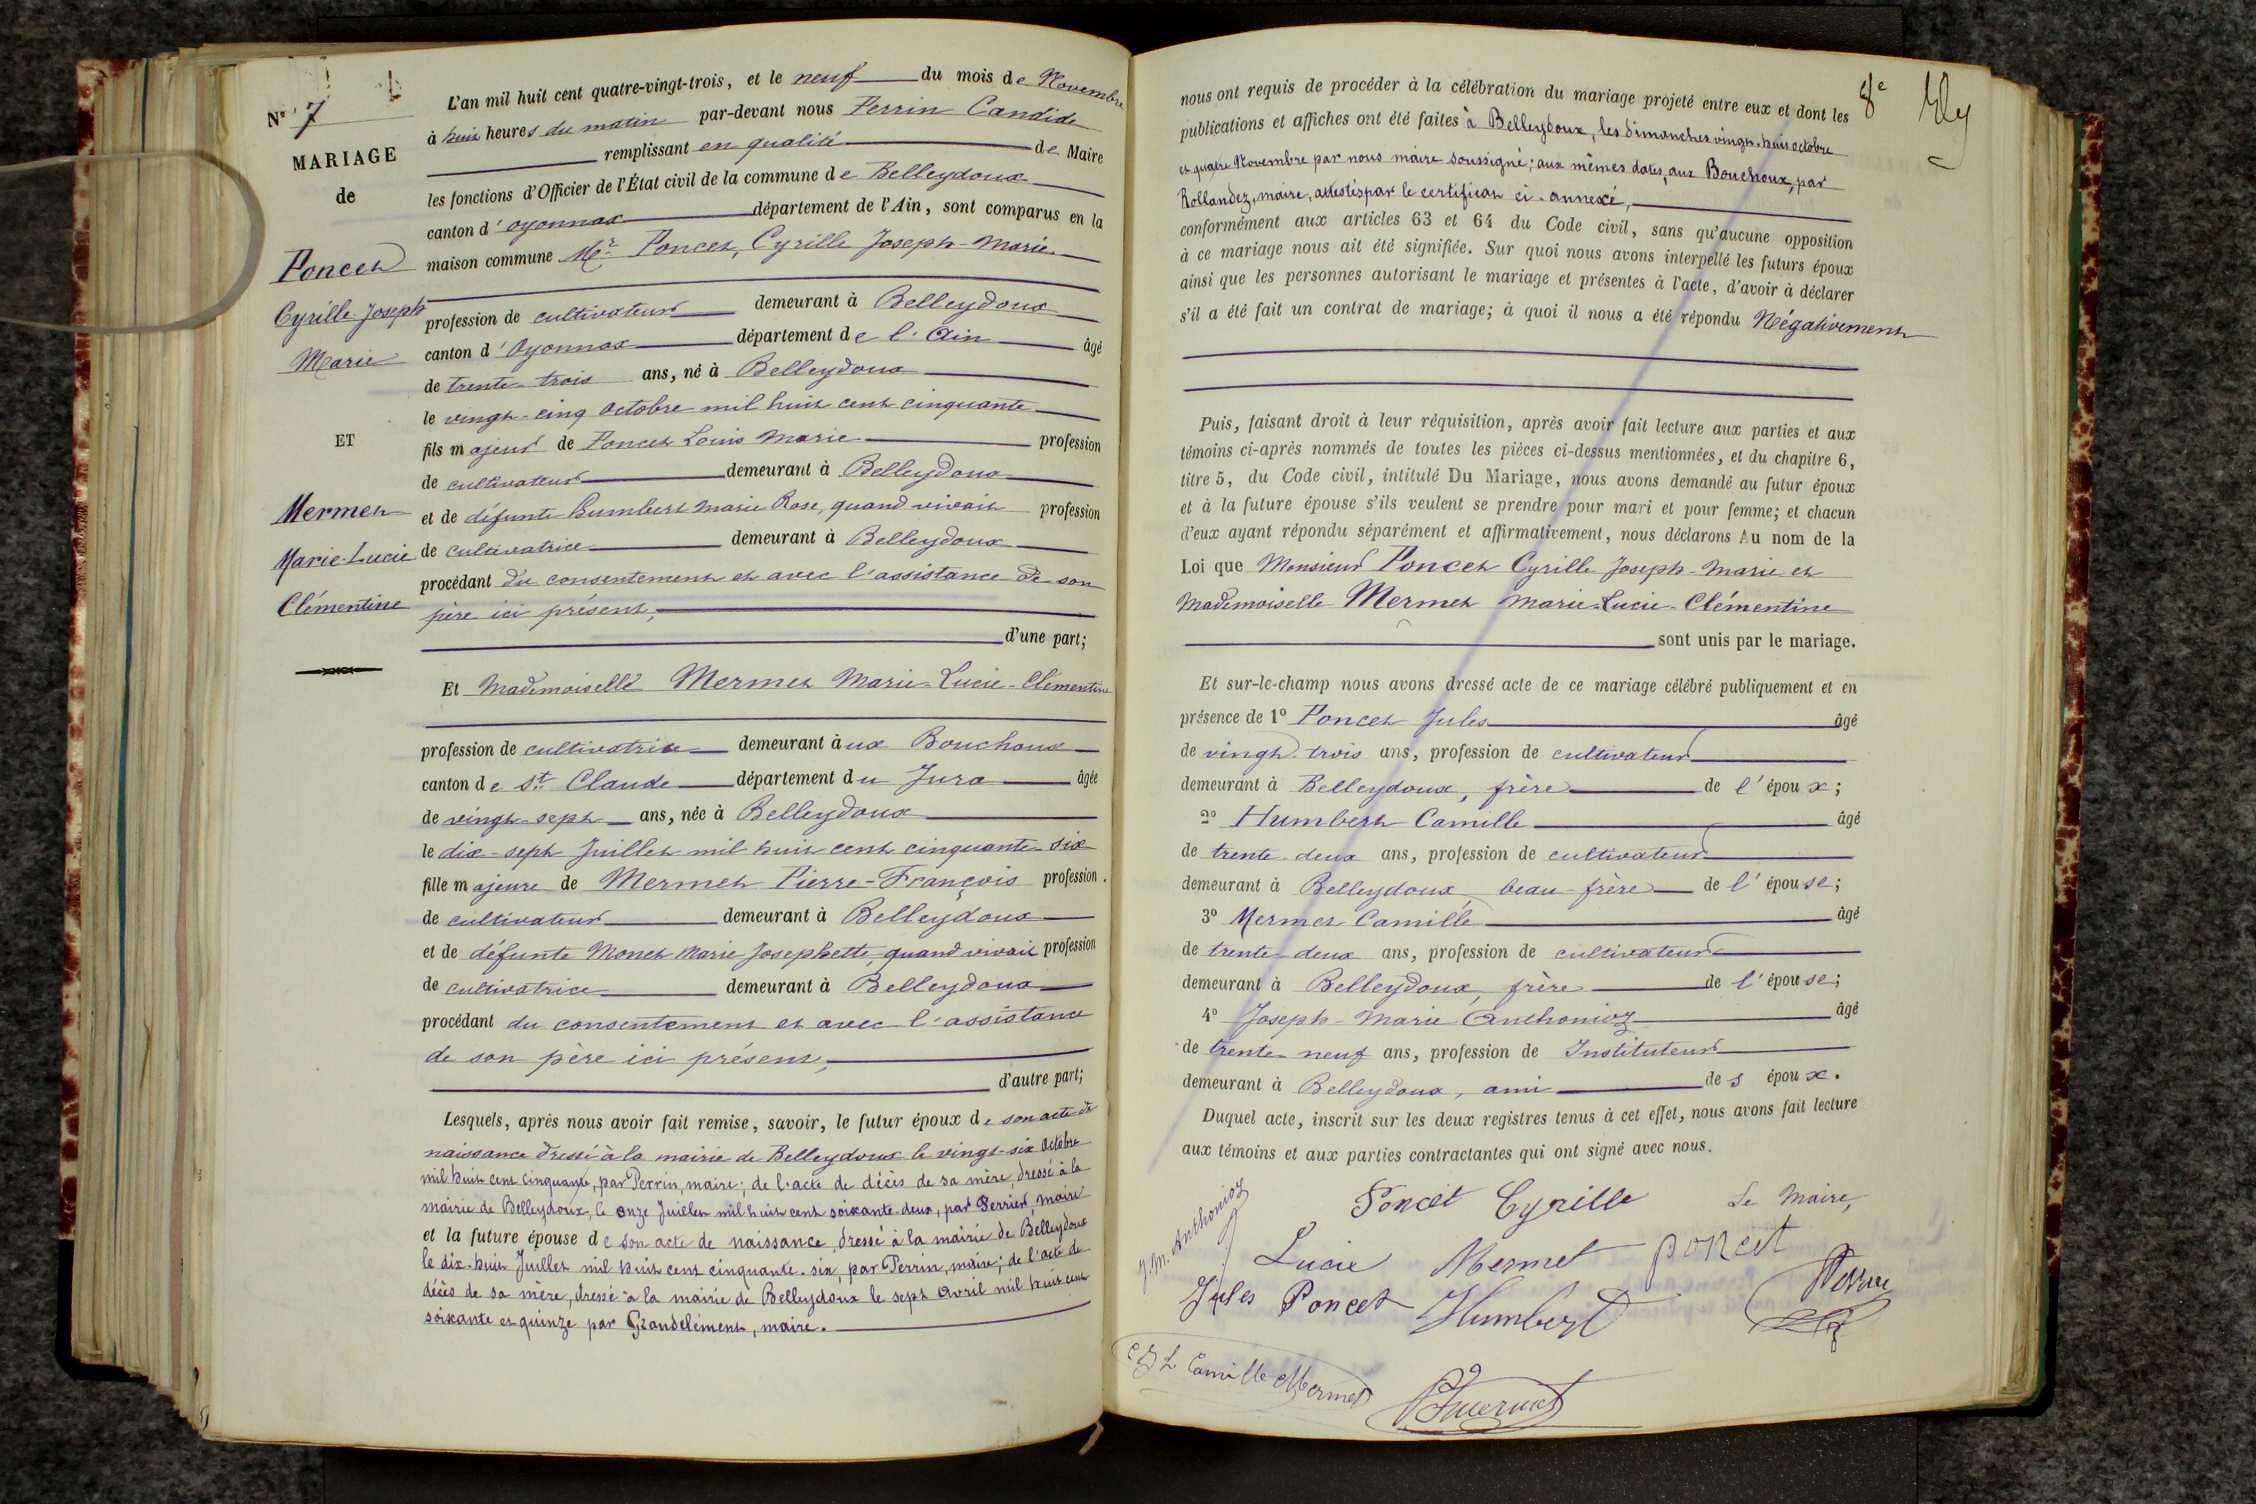 N° 7
MARIAGE
de
Poncet
Cyrille Joseph
Marie
ET
Mermet
Marie-Lucie
Clémentine
L'an mil huit cent quatre-vingt-trois, et le neuf du mois de Novembre
à huit heures du matin par-devant nous Perrin Candide
remplissant en qualité de Maire
les fonctions d'Officier de l'État civil de la commune de Belleydoux
canton d'oyonnax département de l'Ain, sont comparus en la
maison commune Mr. Poncet, Cyrille Joseph-Marie
profession de cultivateur demeurant à Belleydoux
canton d'Oyonnax département de l'Ain âgé
de trente-trois ans, né à Belleydoux
le vingt-cinq octobre mil huit cent cinquante
fils majeur de Poncet Louis Marie profession
de cultivateur demeurant à Belleydoux
et de défunte Humbert Marie Rose, quand vivait profession
de cultivatrice demeurant à Belleydoux
procédant du consentement et avec l'assistance de son
père ici présent,
d'une part;
Et Mademoiselle Mermet Marie-Lucie-Clémentine
profession de cultivatrice demeurant aux Bouchoux
canton de St. Claude département du Jura âgée
de vingt-sept ans, née à Belleydoux
le dix-sept Juillet mil huit cent cinquante-six
fille majeure de Mermet Pierre-François profession.
de cultivateur demeurant à Belleydoux
et de défunte Monet Marie Josephette, quand vivait profession
de cultivatrice demeurant à Belleydoux
procédant du consentement et avec l'assistance
de son père ici présent,
d'autre part;
Lesquels, après nous avoir fait remise, savoir, le futur époux de son acte de
naissance dressé à la mairie de Belleydoux le vingt-six octobre
mil huit cent cinquante, par Perrin, maire; de l'acte de décès de sa mère, dressé à la
mairie de Belleydoux, le onze Juillet mil huit cent soixante-deux, par Perrier, maire
et la future épouse de son acte de naissance, dressé à la mairie de Belleydoux
le dix-huit Juillet mil huit cent cinquante-six, par Perrin, maire; de l'acte de
décès de sa mère, dressé à la mairie de Belleydoux le sept avril mil huit cent
soixante et quinze par Grandclément, maire.
8e
nous ont requis de procéder à la célébration du mariage projeté entre eux et dont les
publications et affiches ont été faites à Belleydoux, les dimanches vingt-huit octobre
et quatre Novembre par nous maire soussigné; aux mêmes dates, aux Bouchoux, par
Rollandez, maire, attestés par le certificat ci-annexé,
conformément aux articles 63 et 64 du Code civil, sans qu'aucune opposition
à ce mariage nous ait été signifiée. Sur quoi nous avons interpellé les futurs époux
ainsi que les personnes autorisant le mariage et présentes à l'acte, d'avoir à déclarer
s'il a été fait un contrat de mariage; à quoi il nous a été répondu Négativement
Puis, faisant droit à leur réquisition, après avoir fait lecture aux parties et aux
témoins ci-après nommés de toutes les pièces ci-dessus mentionnées, et du chapitre 6,
titre 5, du Code civil, intitulé Du Mariage, nous avons demandé au futur époux
et à la future épouse s'ils veulent se prendre pour mari et pour femme; et chacun
d'eux ayant répondu séparément et affirmativement, nous déclarons Au nom de la
Loi que Monsieur Poncet Cyrille Joseph-Marie et
Mademoiselle Mermet Marie-Lucie-Clémentine
sont unis par le mariage.
Et sur-le-champ nous avons dressé acte de ce mariage célébré publiquement et en
présence de 1° Poncet Jules âgé
de vingt-trois ans, profession de cultivateur
demeurant à Belleydoux, frère de l'époux;
2° Humbert Camille âgé
de trente-deux ans, profession de cultivateur
demeurant à Belleydoux beau-frère de l'épouse;
3° Mermet Camille âgé
de trente-deux ans, profession de cultivateur
demeurant à Belleydoux, frère de l'épouse;
4° Joseph-Marie Anthonioz âgé
de trente-neuf ans, profession de Instituteur
demeurant à Belleydoux, ami des époux.
Duquel acte, inscrit sur les deux registres tenus à cet effet, nous avons fait lecture
aux témoins et aux parties contractantes qui ont signé avec nous.
J. M. Anthonioz
Poncet Cyrille Le Maire,
Lucie Mermet poncet
Perrin
Jules Poncet Humbert
Camille Mermet